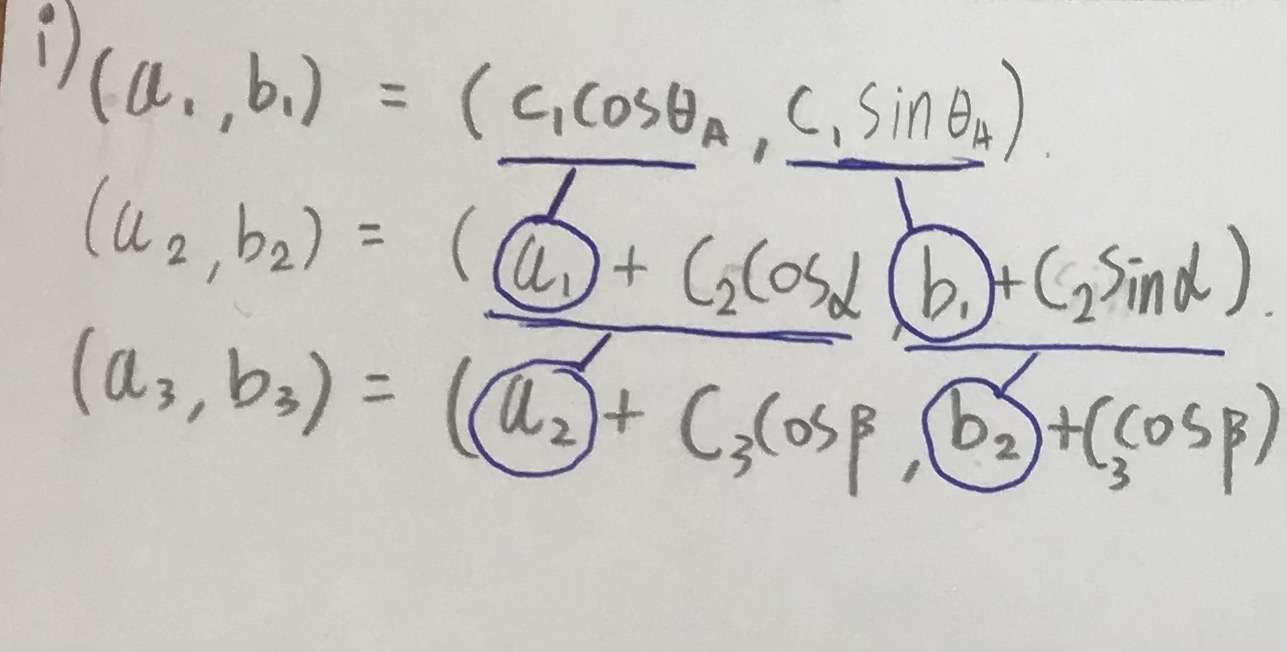 i) (a₁, b₁) = (c₁cosθ_A, c₁sinθ_A).
(a₂, b₂) = (a₁ + C₂cosα, b₁ + C₂sinα).
(a₃, b₃) = (a₂ + C₃cosβ, b₂ + C₃cosβ)